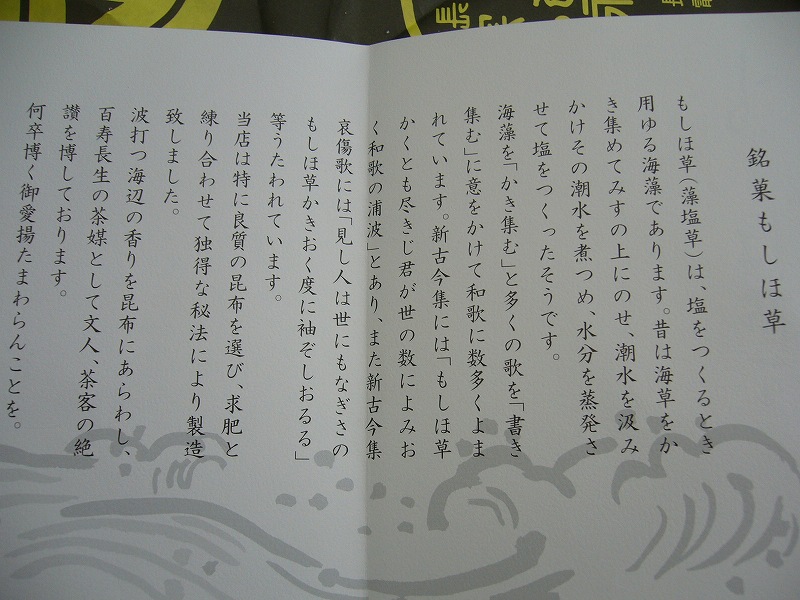 銘菓もしほ草
もしほ草(藻塩草)は、塩をつくるとき
用ゆる海藻であります。昔は海草をか
き集めてみすの上にのせ、潮水を汲み
かけその潮水を煮つめ、水分を蒸発さ
せて塩をつくったそうです。
海藻を「かき集む」と多くの歌を「書き
集む」に意をかけて和歌に数多くよま
れています。新古今集には「もしほ草
かくとも尽きじ君が世の数によみお
く和歌の浦波」とあり、また新古今集
哀傷歌には「見し人は世にもなぎさの
もしほ草かきおく度に袖ぞしおるる」
等うたわれています。
当店は特に良質の昆布を選び、求肥と
練り合わせて独得な秘法により製造
致しました。
波打つ海辺の香りを昆布にあらわし、
百寿長生の茶媒として文人、茶客の絶
讃を博しております。
何卒博く御愛揚たまわらんことを。